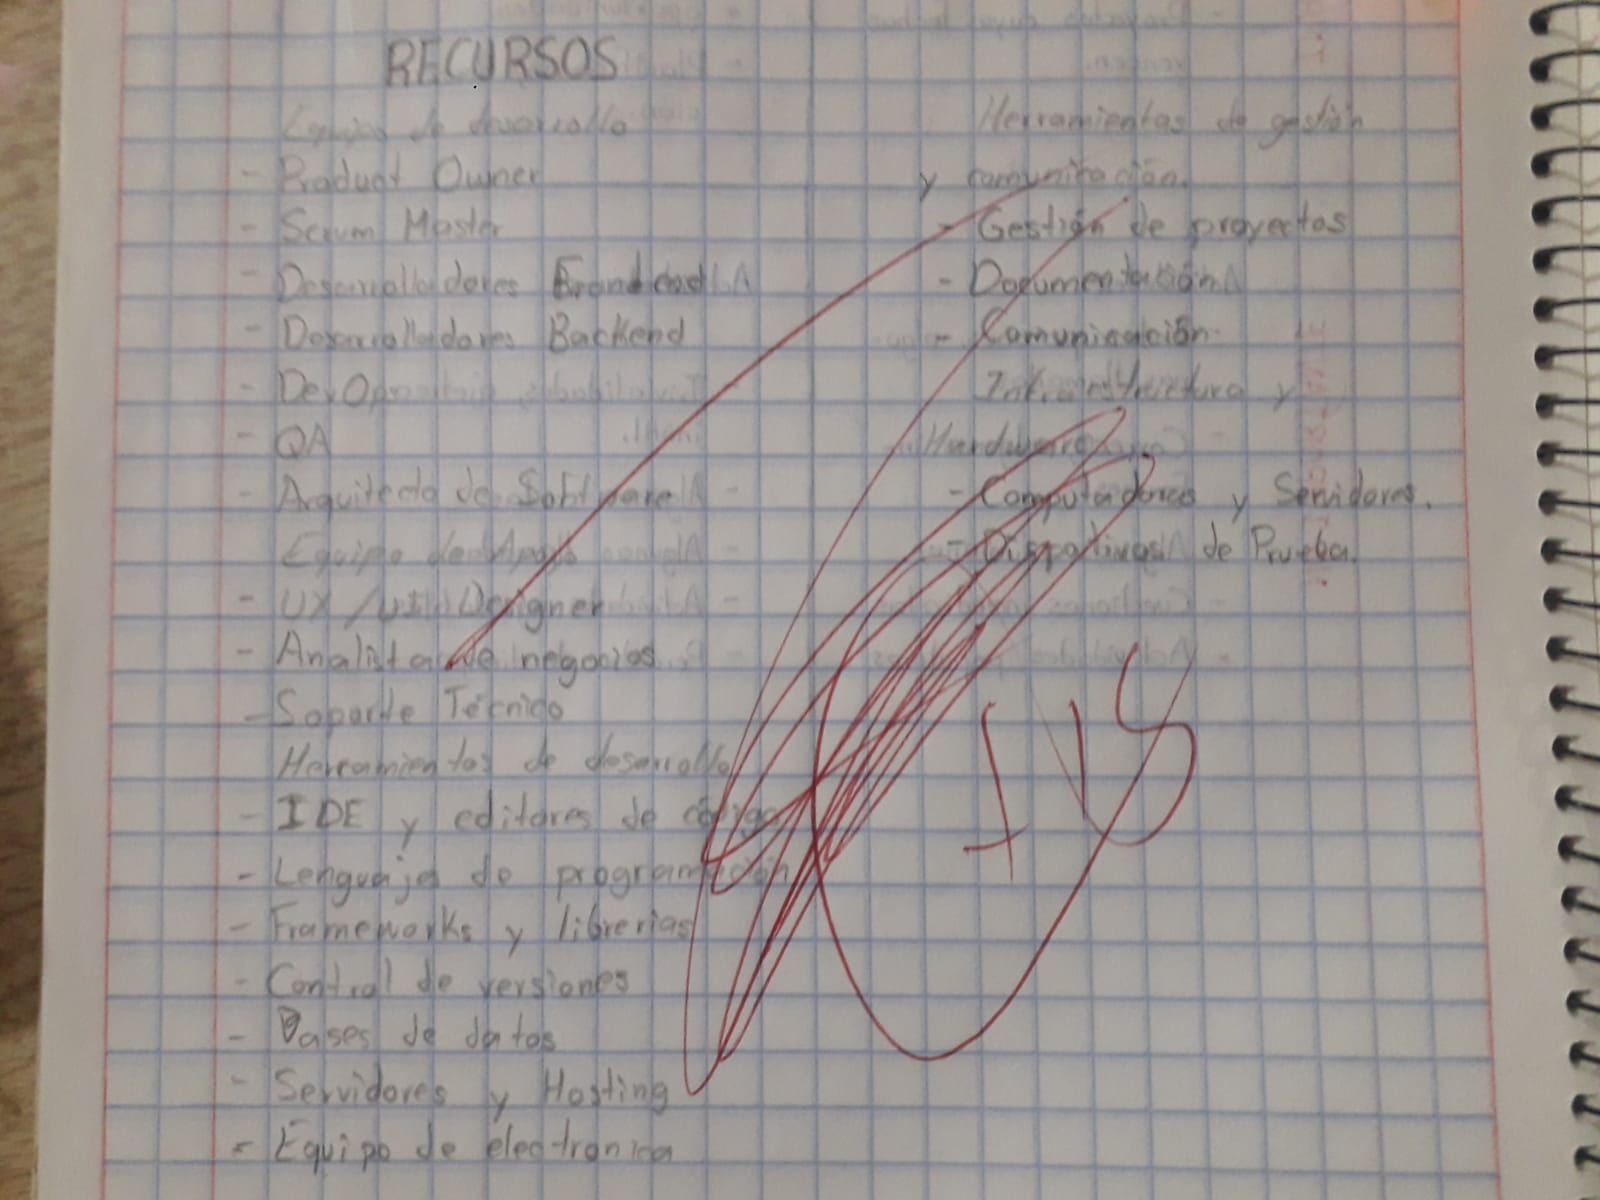 RECURSOS
Equipo de desarrollo
- Product Owner
- Scrum Master
- Desarrolladores Frontend
- Desarrolladores Backend
- DevOps
- QA
- Arquitecto de Software
Equipo de Apoyo
- UX / UI Designer
- Analista de negocios
- Soporte Técnico
Herramientas de desarrollo
- IDE y editores de código
- Lenguajes de programación
- Frameworks y librerias
- Control de versiones
- Bases de datos
- Servidores y Hosting
- Equipo de electronica
Herramientas de gestión
y comunicación.
- Gestión de proyectos
- Documentación
- Comunicación
Infraestructura y
Hardware
- Computadores y Servidores.
- Dispositivos de Prueba.